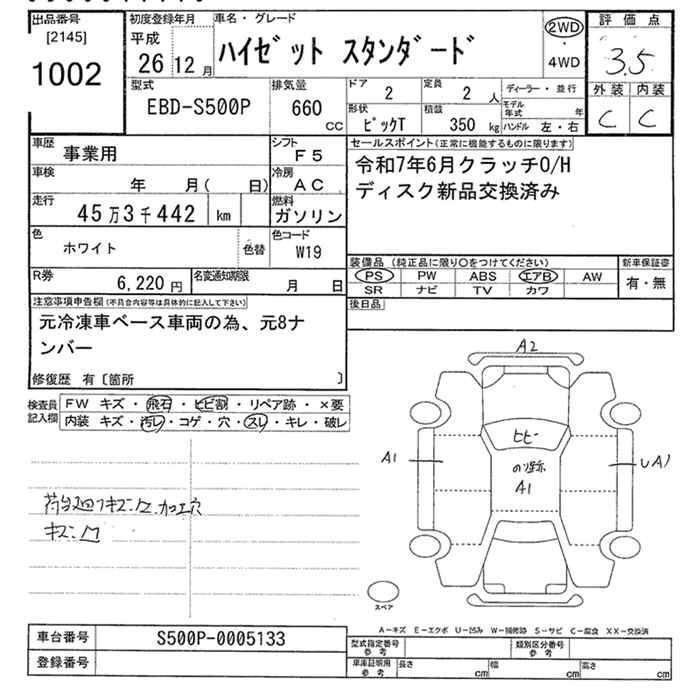 出品番号
[2145]
1002
初度登録年月
平成
26 12 月
車名・グレード
ハイゼット スタンダード
2WD
・
4WD
評価点
3.5
外装 内装
C C
型式
EBD-S500P
排気量
660
CC
ドア
2
定員
2 人
ディーラー・並行
形状
ピックT
積載
350 kg
モデル年式 年
ハンドル 左・右
車歴
事業用
シフト
F5
車検
年 月( 日)
冷房
AC
走行
45万3千442 km
燃料
ガソリン
色
ホワイト
色替
色コード
W19
R券
6,220円
名変通知期限
月 日
セールスポイント(正常に機能するものに限ります)
令和7年6月クラッチO/H
ディスク新品交換済み
装備品 (純正品に限り○をつけてください)
PS PW ABS エアB AW
SR ナビ TV カワ
新車保証書
有・無
後日品
注意事項申告欄(不具合内容等は具体的に記入して下さい)
元冷凍車ベース車両の為、元8ナ
ンバー
修復歴 有〔箇所 〕
検査員記入欄
FW キズ・飛石・ヒビ割・リペア跡・×要
内装 キズ・汚レ・コゲ・穴・スレ・キレ・破レ
キズ
A2
A1
ヒビー
A1
UA1
スペア
A-キズ E-エクボ U-凹み W-補修跡 S-サビ C-腐食 XX-交換済
車台番号
S500P-0005133
登録番号
型式指定番号
参考
類別区分番号
参考
車庫証明用
参考
長さ cm
幅 cm
高さ cm